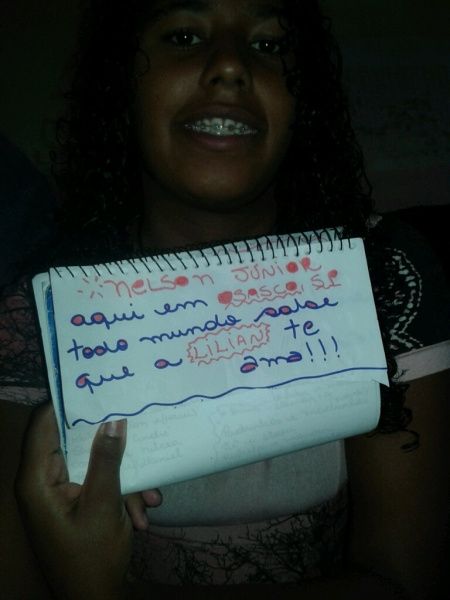 NELSON JÚNIOR
aqui em OSASCO, SP
todo mundo sabe
que a LILIAN te
ama!!!